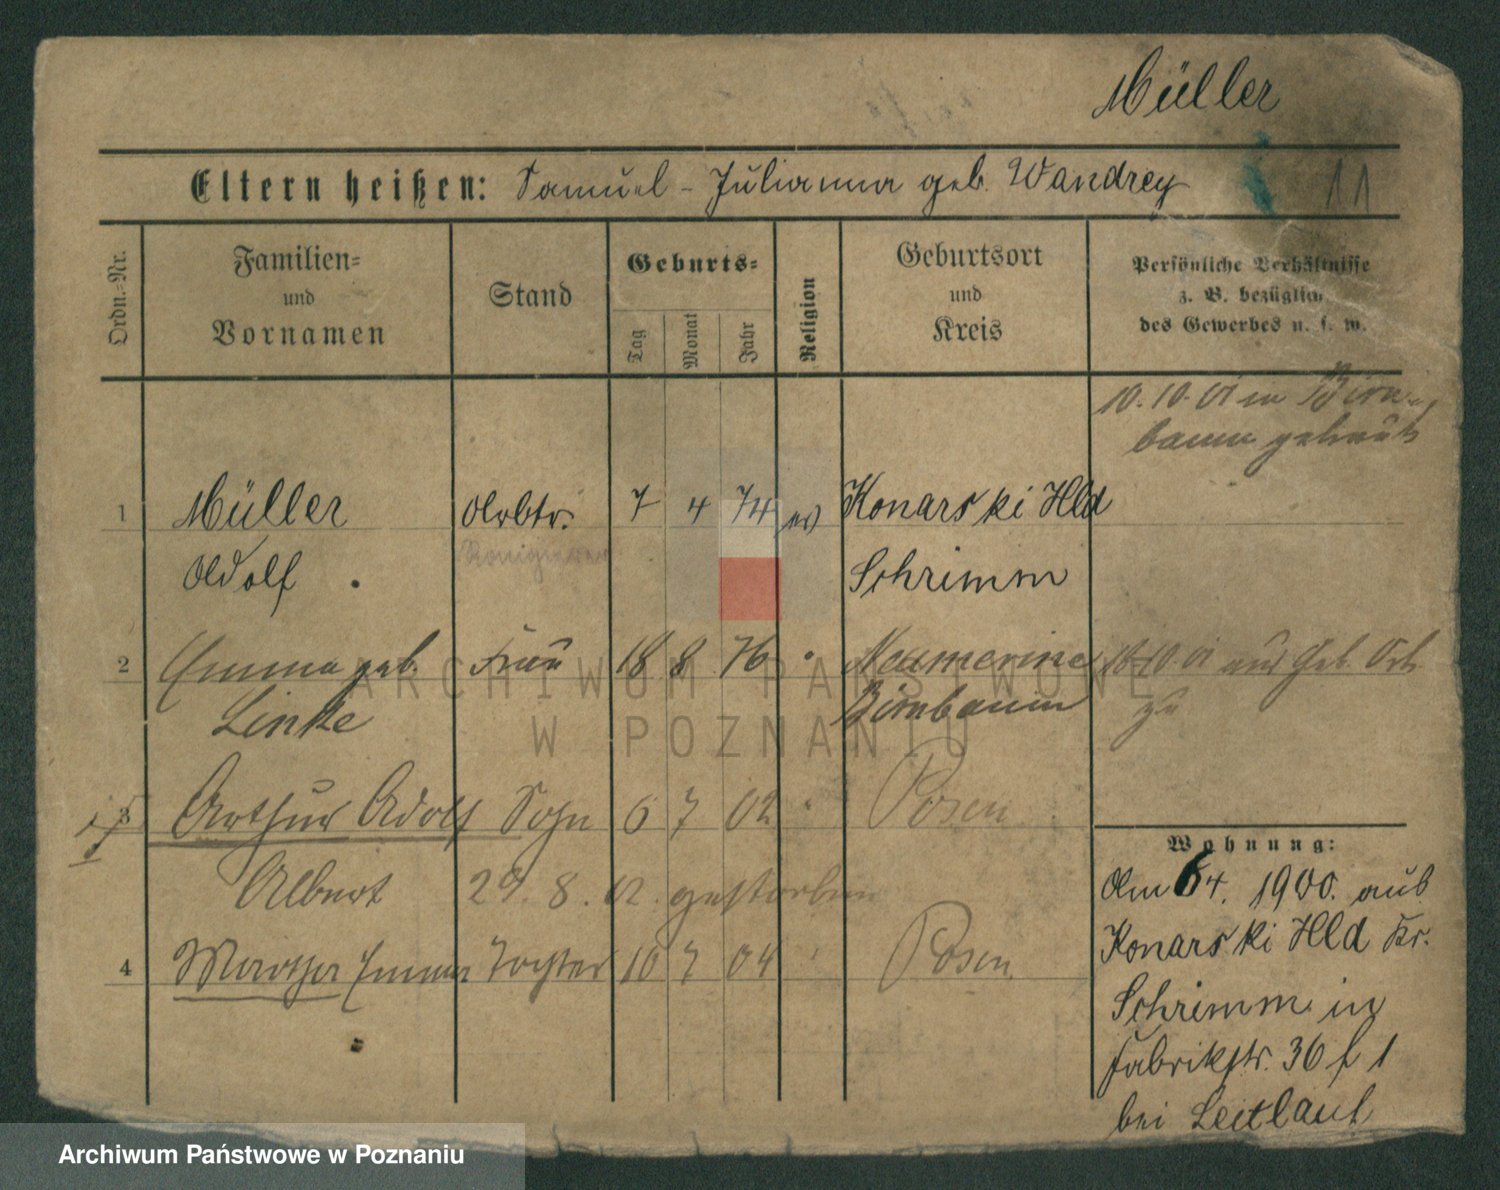 Müller
Eltern heißen: Samuel - Julianna geb. Wandrey 11
Ordn.-Nr.
Familien-
und
Vornamen
Stand
Geburts-
Tag
Monat
Jahr
Religion
Geburtsort
und
Kreis
Persönliche Verhältnisse
z. B. bezüglich
des Gewerbes u. s. w.
10.10.01 in Birn-
baum getraut
1 Müller Arbtr. 7 4 74 ev Konarski Hld
Adolf Schrimm
2 Emma geb. Frau 18 8 76 Neumerine 18.10.01 aus Geb. Ort
Linke Birnbaum zu
3 Arthur Adolf Sohn 6 7 02 Posen
Albert 29. 8. 02. gestorben
4 Martha Emma Tochter 10 7 04 Posen
Wohnung:
Am 6 4. 1900. aus
Konarski Hld Kr.
Schrimm in
Fabrikstr. 36 f 1
bei Leitlauf
ARCHIWUM PAŃSTWOWE
W POZNANIU
Archiwum Państwowe w Poznaniu